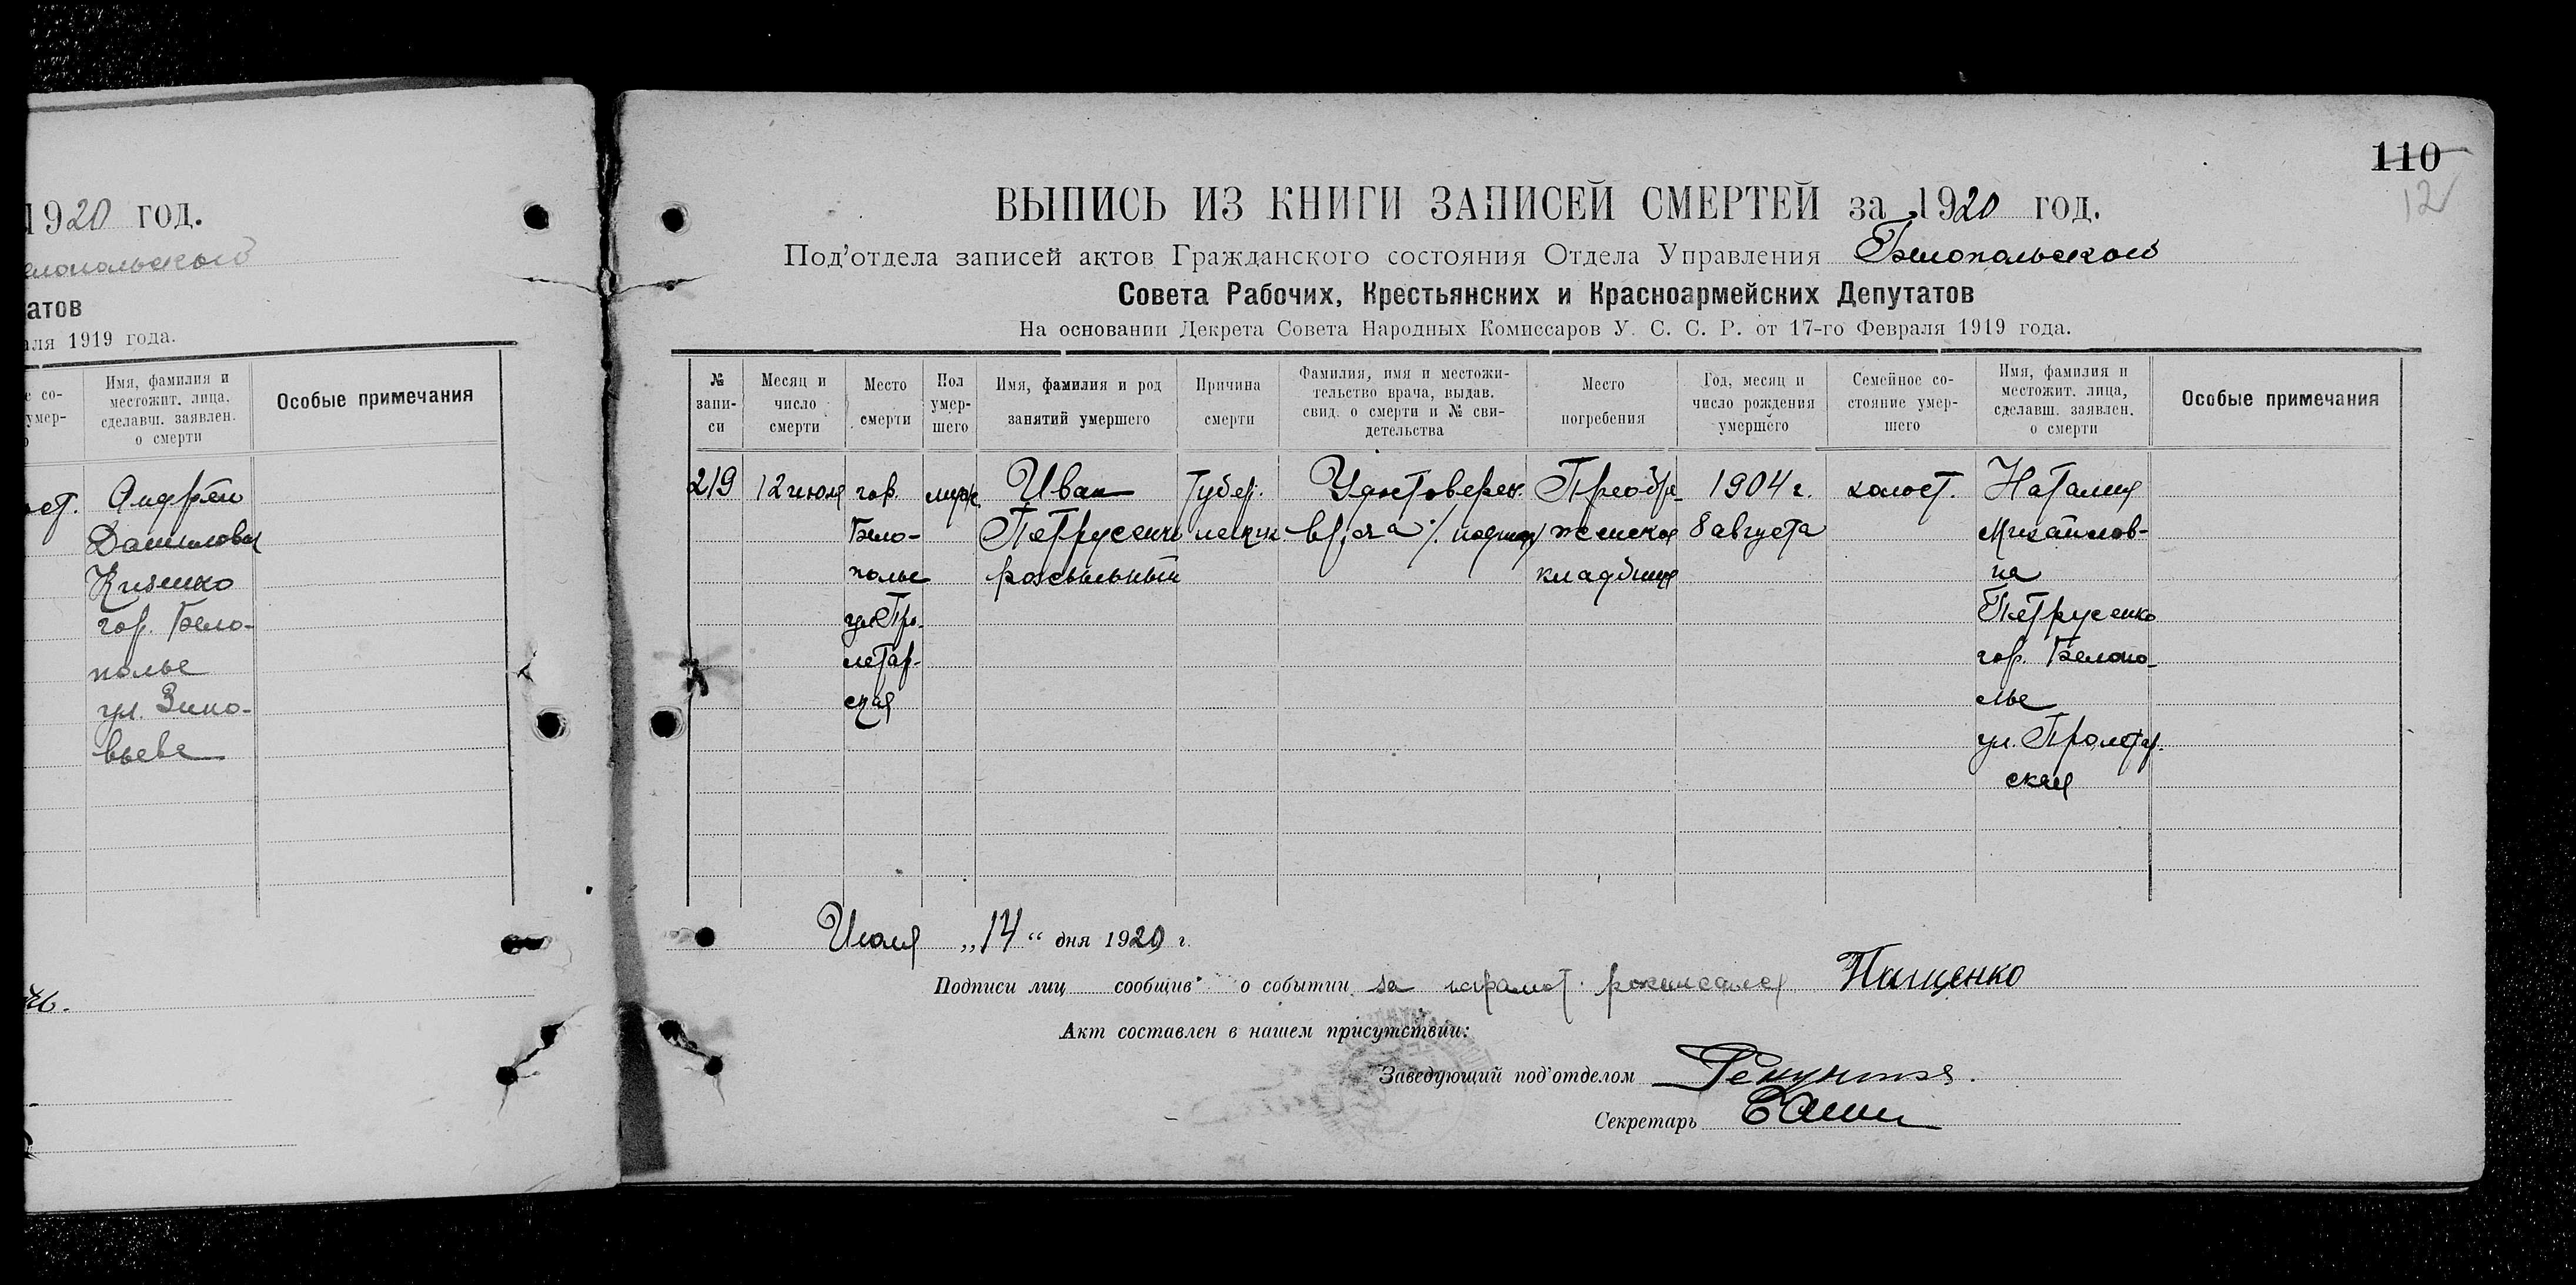 1920 год.
елопольской
атов
аля 1919 года.
е со-
умер-
о
Имя, фамилия и
местожит. лица,
сделавш. заявлен.
о смерти
Особые примечания
ост.
Андрей
Данилович
Кизенко
гор. Бело-
полье
ул. Зино-
вьева
110
12
ВЫПИСЬ ИЗ КНИГИ ЗАПИСЕЙ СМЕРТЕЙ за 1920 год.
Под'отдела записей актов Гражданского состояния Отдела Управления Белопольской
Совета Рабочих, Крестьянских и Красноармейских Депутатов
На основании Декрета Совета Народных Комиссаров У. С. С. Р. от 17-го Февраля 1919 года.
№
запи-
си
Месяц и
число
смерти
Место
смерти
Пол
умер-
шего
Имя, фамилия и род
занятий умершего
Причина
смерти
Фамилия, имя и местожи-
тельство врача, выдав.
свид. о смерти и № сви-
детельства
Место
погребения
Год, месяц и
число рождения
умершего
Семейное со-
стояние умер-
шего
Имя, фамилия и
местожит. лица,
сделавш. заявлен.
о смерти
Особые примечания
219
12 июля
гор.
Бело-
полье
ул. Про-
летар-
ская
муж
Иван
Петрусенко
розсыльный
Тубер.
легких
Удостоверен.
врача
Преобра-
женское
кладбище
1904 г.
8 августа
холост.
Наталия
Михайлов-
на
Петрусенко
гор. Белопо-
лье
ул. Пролетар.
ская
Июля „14“ дня 1920 г.
Подписи лиц сообщив о событии за неграмот. росписался Пищенко
Акт составлен в нашем присутствии:
Заведующий под'отделом
Секретарь